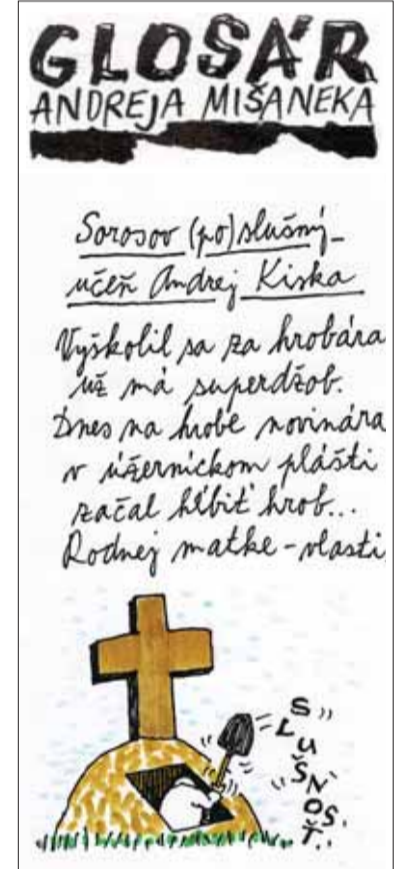 GLOSÁR
ANDREJA MIŠANEKA
Sorosov (po)slušný
učeň Andrej Kiska
Vyškolil sa za hrobára
už má superdžob.
Dnes na hrobe novinára
v úžerníckom plášti
začal hĺbiť hrob...
Rodnej matke-vlasti
SLUŠNOSŤ